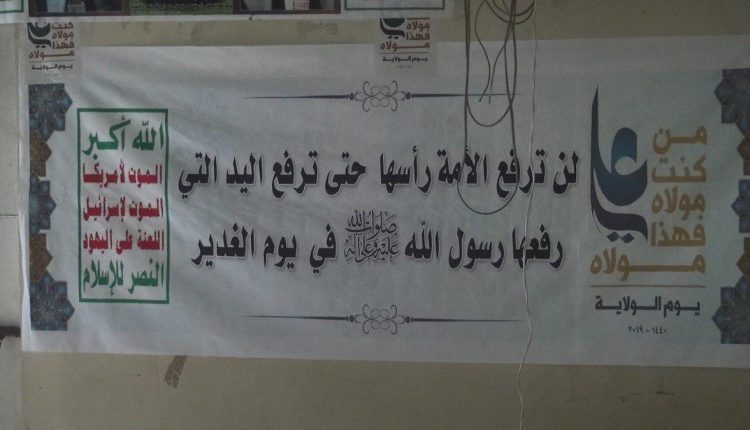 كنت
مولاه
فهذا
مولاه
يوم الولاية
كنت
مولاه
فهذا
مولاه
يوم الولاية
الله أكبر
الموت لأمريكا
الموت لإسرائيل
اللعنة على اليهود
النصر للإسلام
لن ترفع الأمة رأسها حتى ترفع اليد التي
رفعها رسول الله صلوات الله عليه وعلى آله في يوم الغدير
من
كنت
مولاه
فهذا
علي
مولاه
يوم الولاية
١٤٤٠ - ٢٠١٩